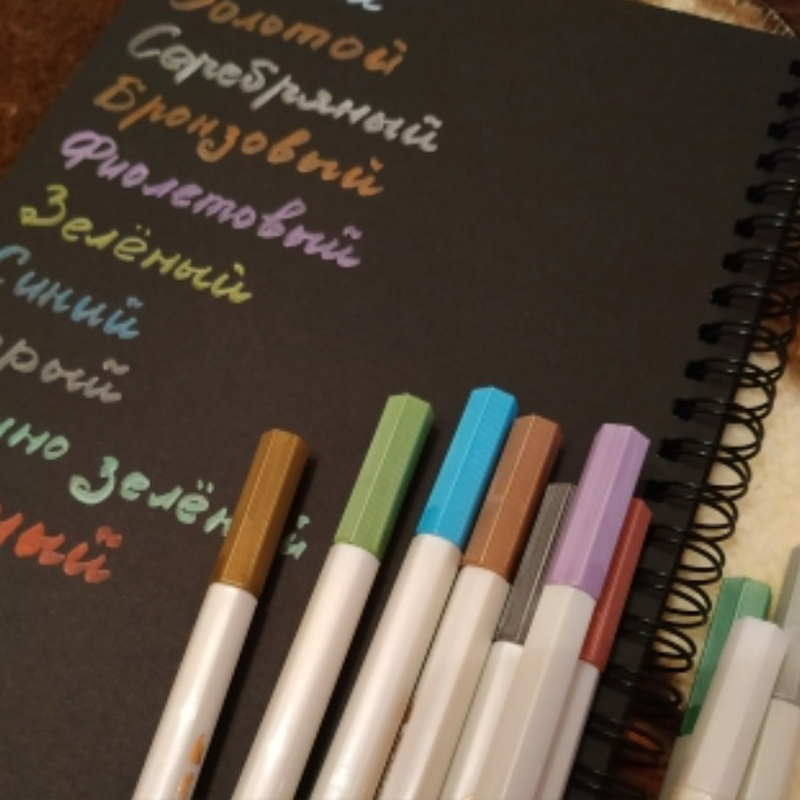 Золотой
Серебряный
Бронзовый
Фиолетовый
Зелёный
Синий
зелёный